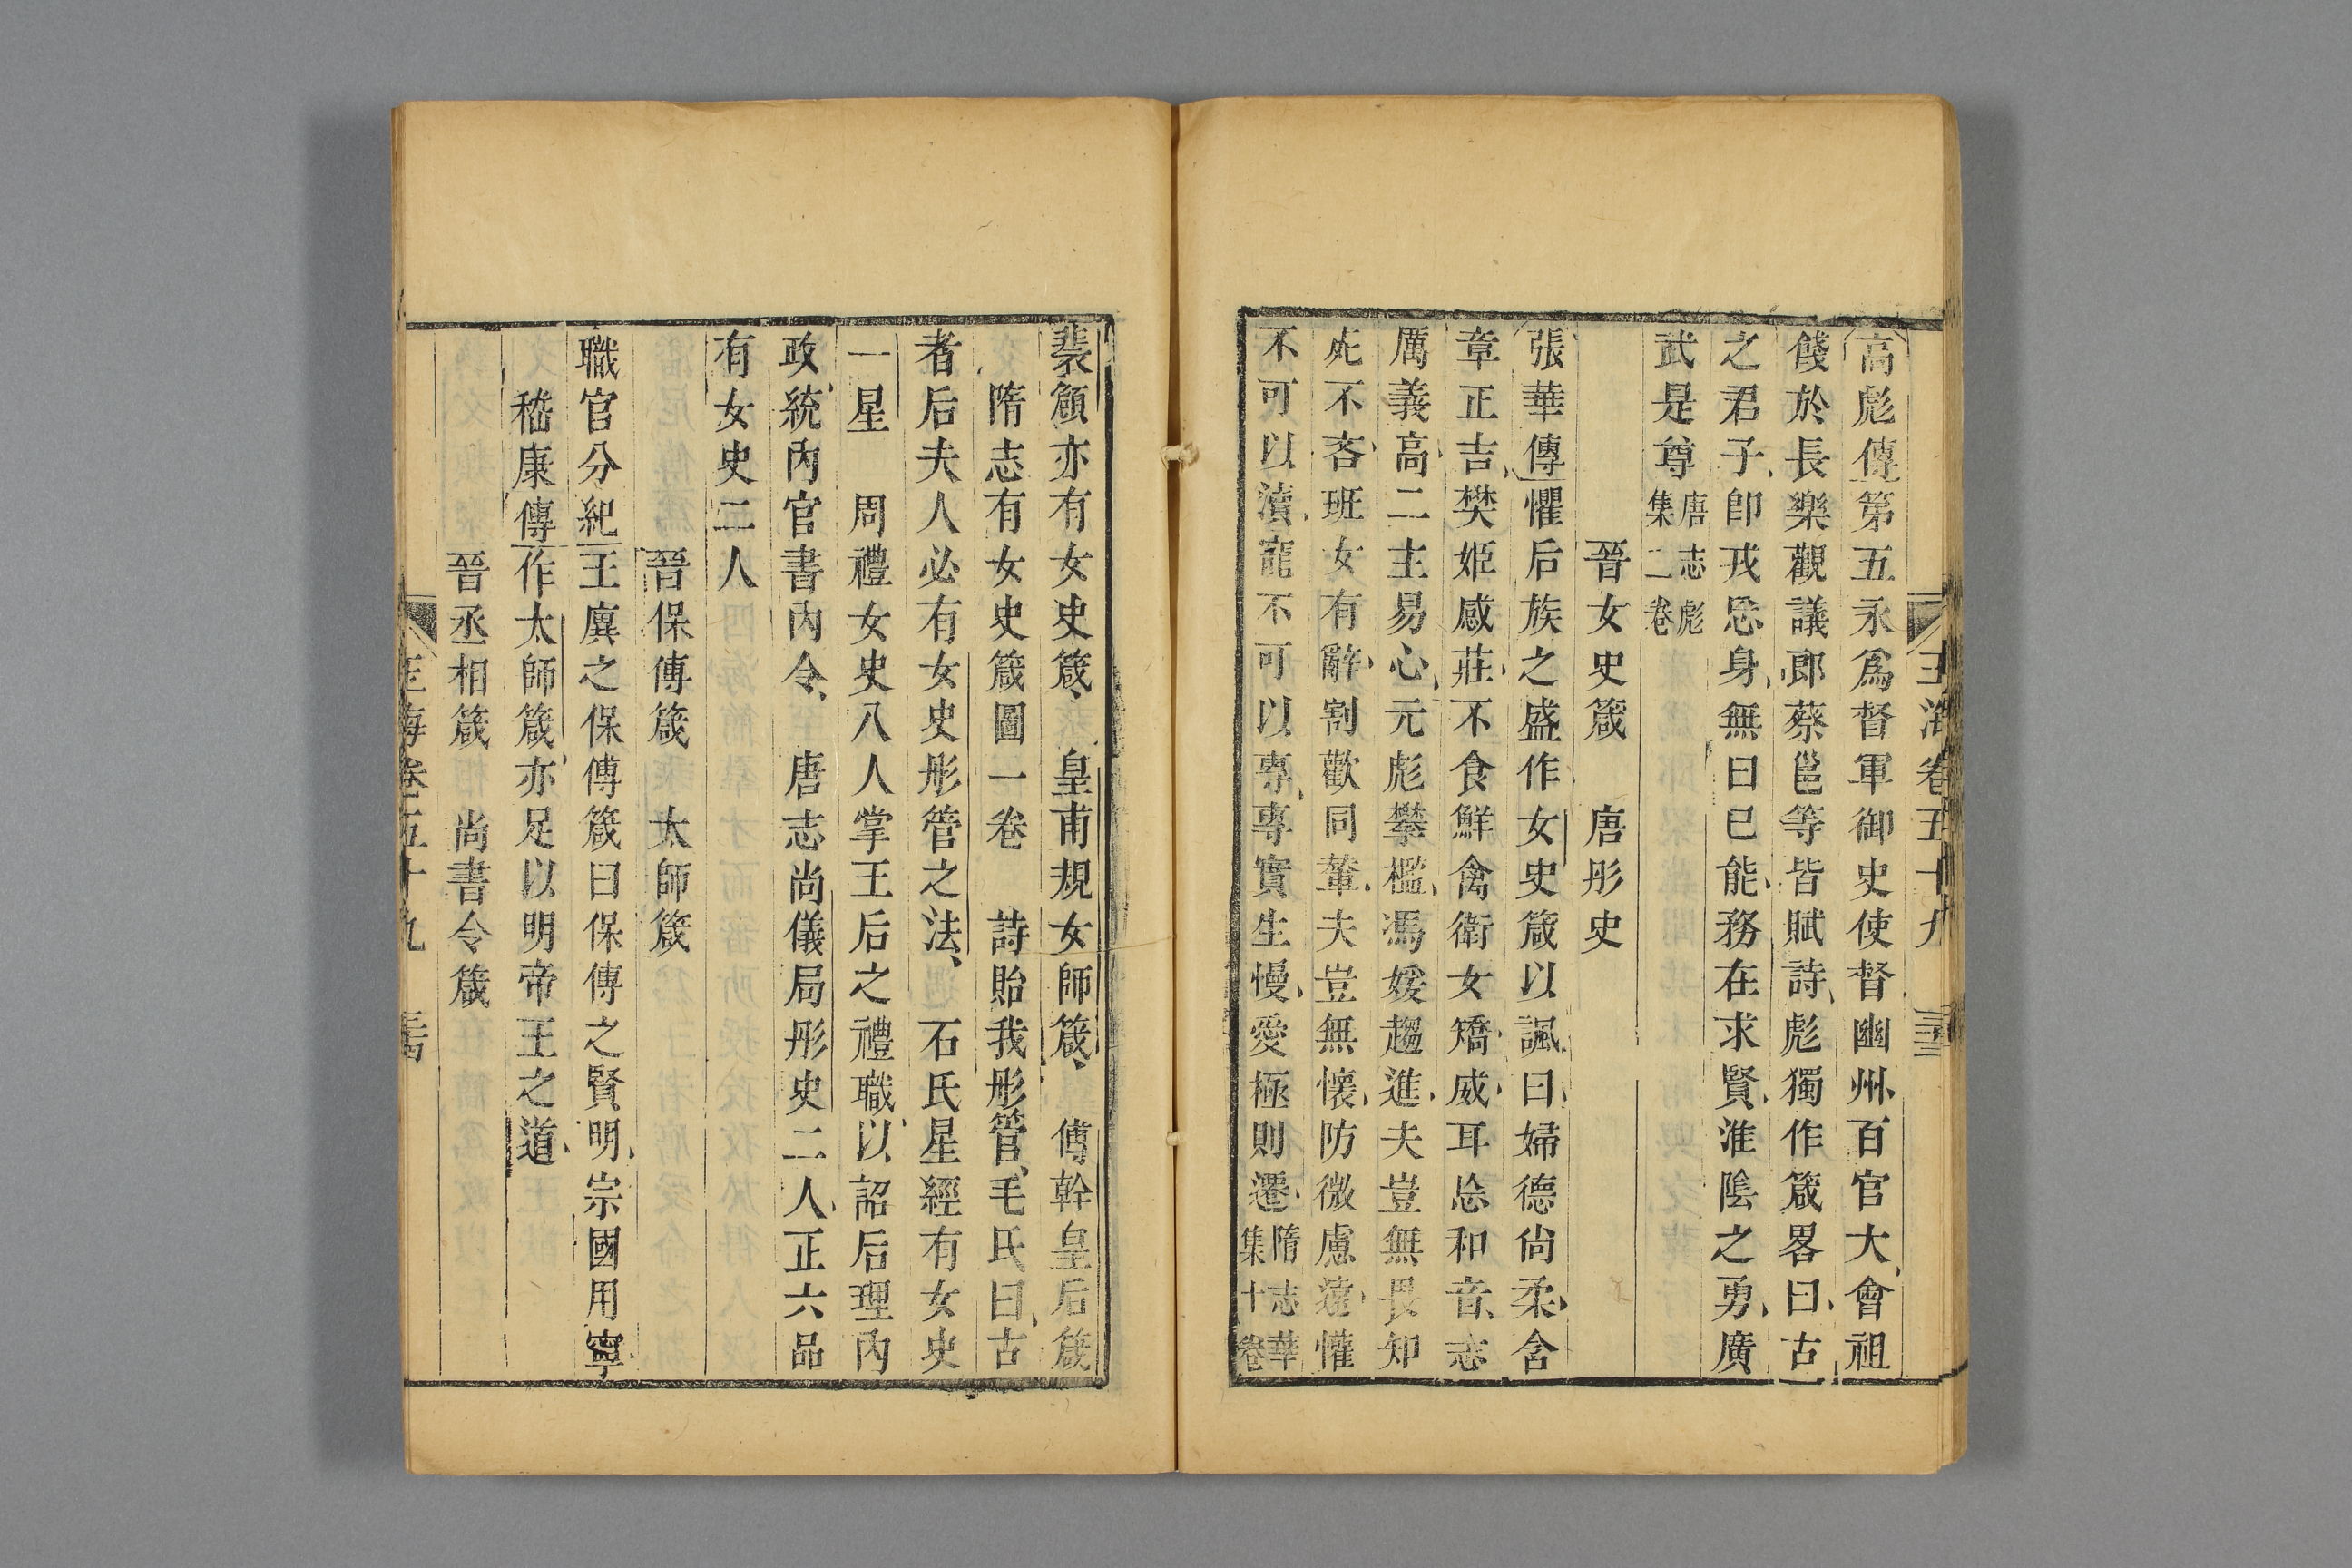 玉海卷五十九
高彪傳第五永爲督軍御史使督幽州百官大會祖
餞於長樂觀議郎蔡邕等皆賦詩彪獨作箴畧曰古
之君子卽戎忘身無曰已能務在求賢淮陰之勇廣
武是尊唐志彪集二卷
晉女史箴 唐彤史
張華傳懼后族之盛作女史箴以諷曰婦德尙柔含
章正吉樊姬感莊不食鮮禽衛女矯威耳忘和音志
厲義高二主易心元彪攀檻馮媛趨進夫豈無畏知
死不吝班女有辭割歡同輦夫豈無懷防微慮遠懽
不可以瀆寵不可以專專實生慢愛極則遷隋志華集十卷
裴頠亦有女史箴、 皇甫規女師箴、 傅幹皇后箴
隋志有女史箴圖一卷 詩貽我彤管毛氏曰古
者后夫人必有女史彤管之法、 石氏星經有女史
一星 周禮女史八人掌王后之禮職以詔后理內
政統內官書內令、 唐志尚儀局彤史二人正六品
有女史二人
晉保傅箴 太師箴
職官分紀王廙之保傅箴曰保傅之賢明宗國用寧
嵇康傳作太師箴亦足以明帝王之道
晉丞相箴 尚書令箴
玉海卷五十九